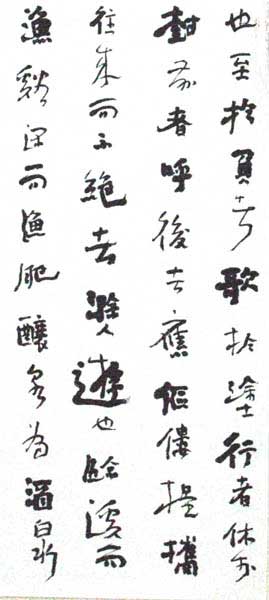 也至於負者歌於塗行者休於
樹前者呼後者應傴僂提攜
往來而不絕者滁人遊也臨谿而
漁谿深而漁肥釀泉為酒泉